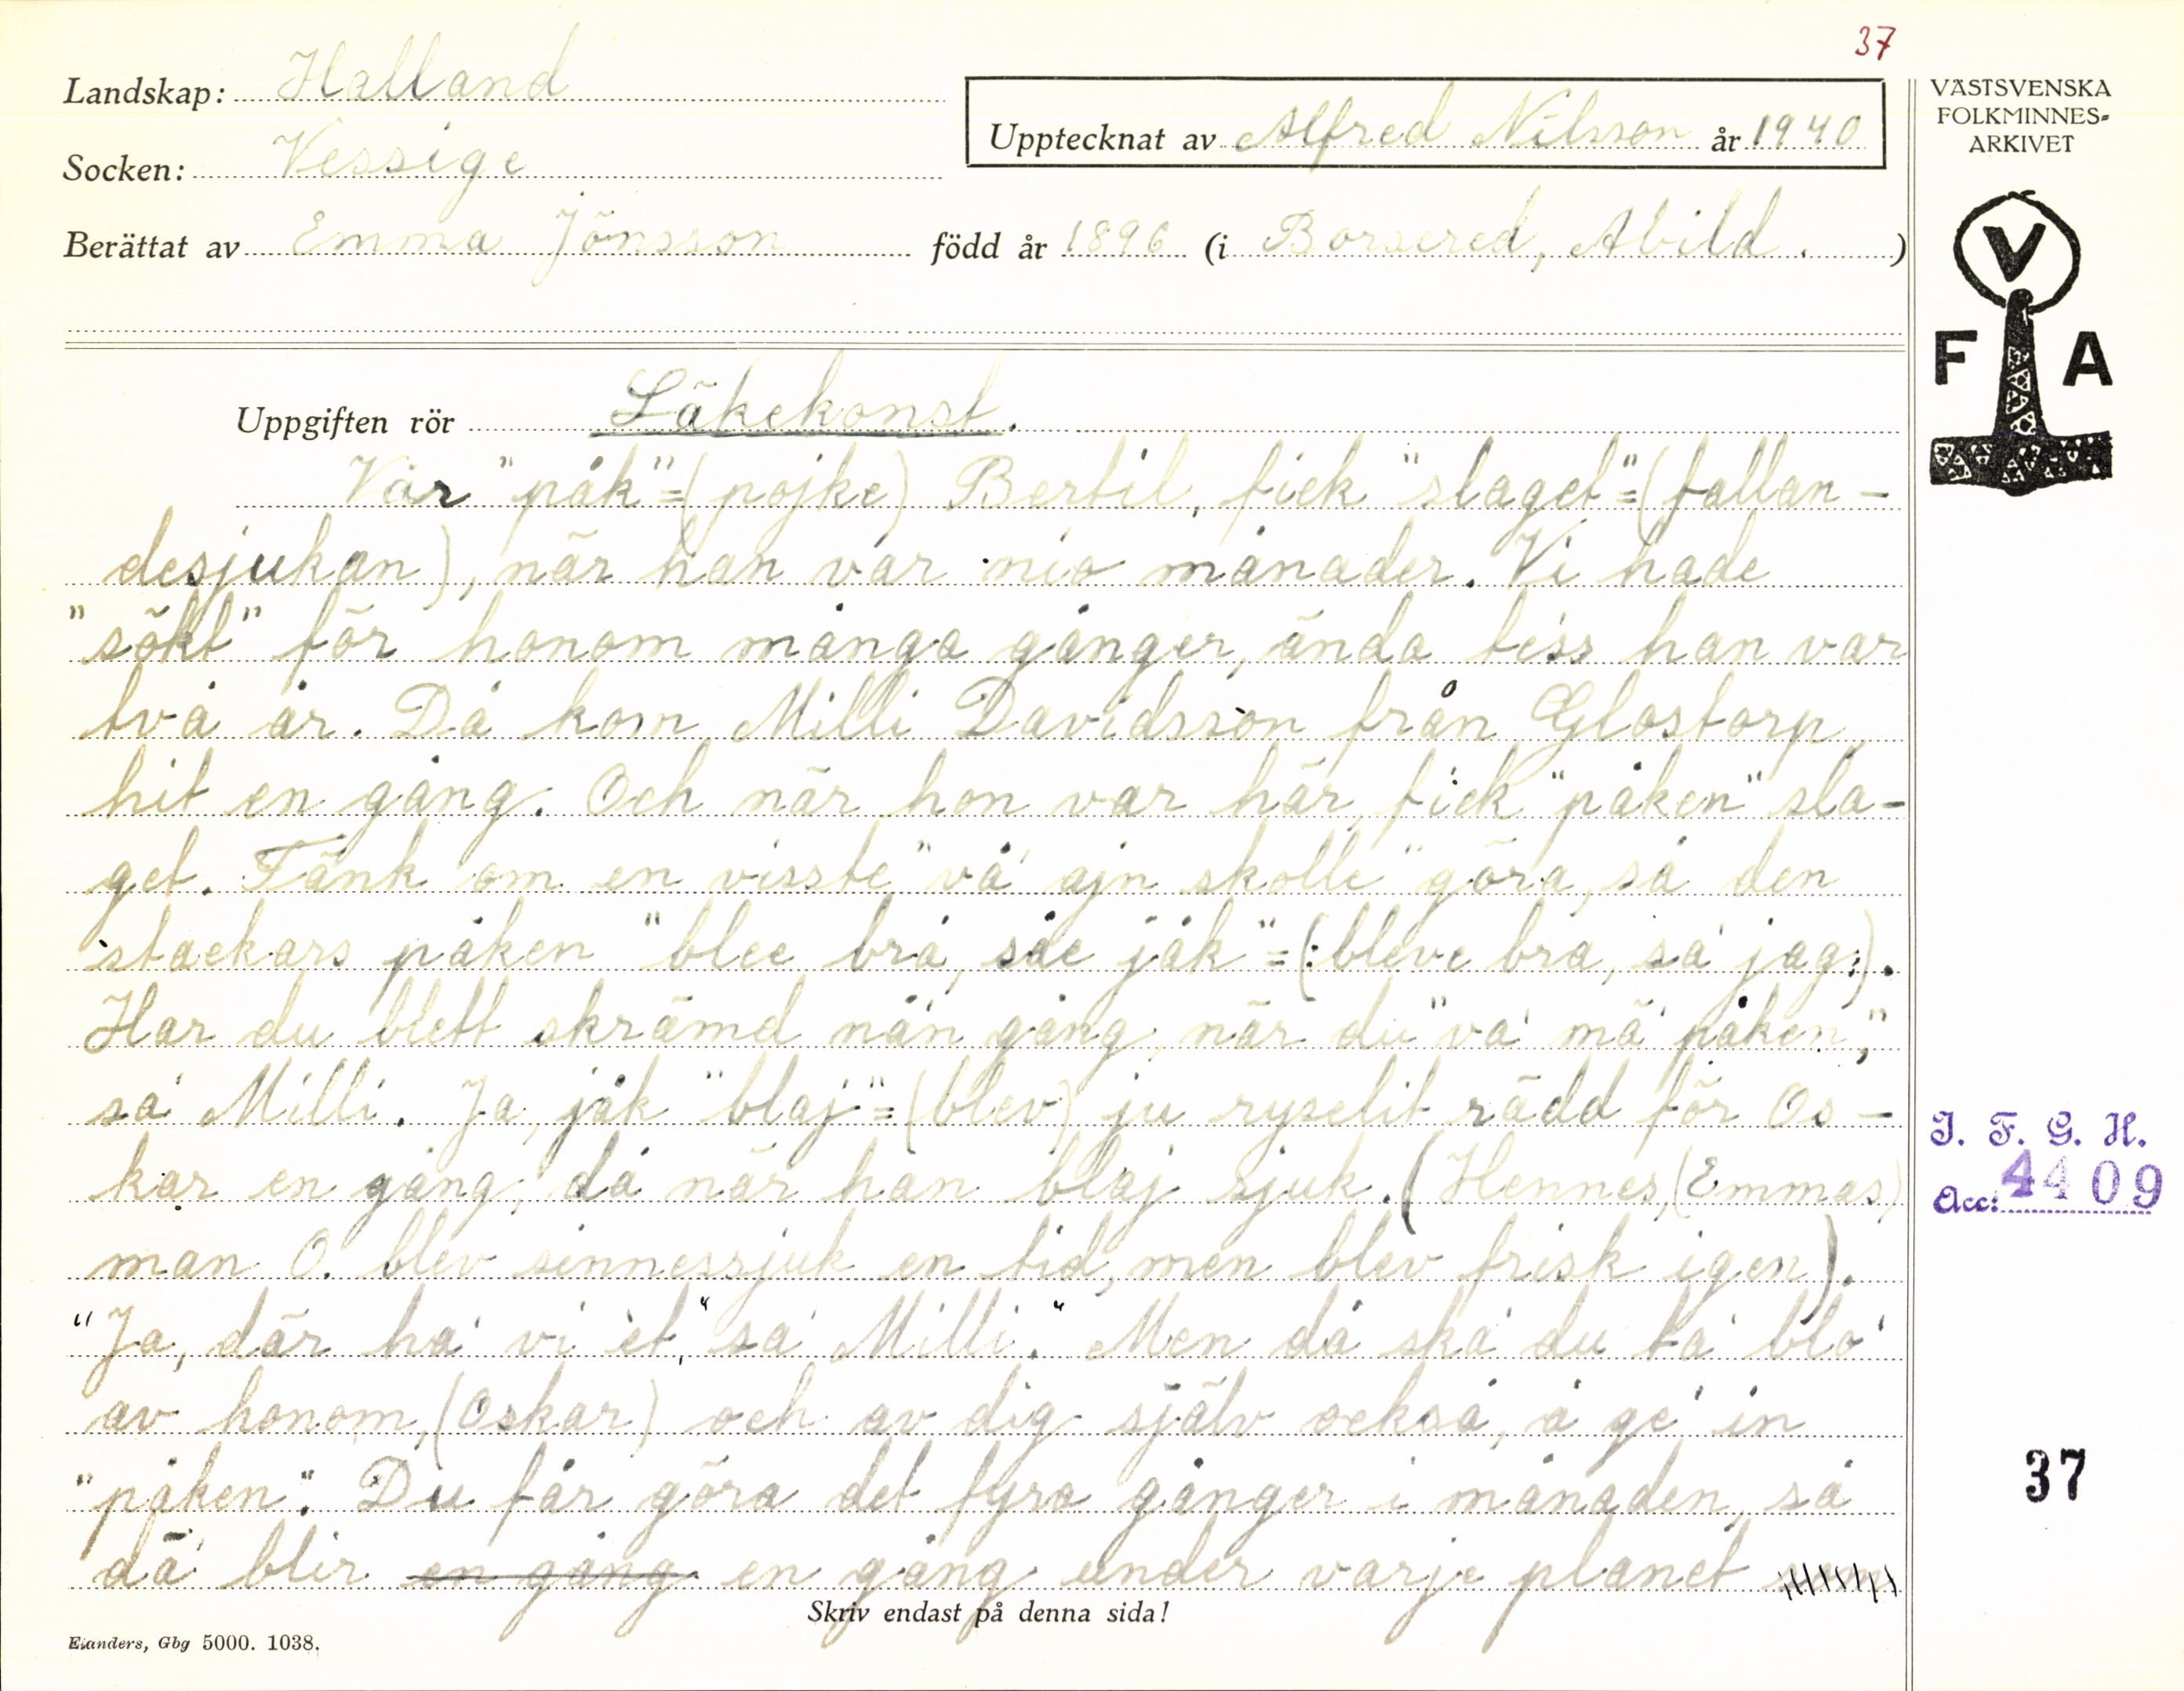 37
Landskap: Halland
Upptecknat av Alfred Nilsson år 1940
Socken: Vessige
Berättat av Emma Jönsson född år 1896 (i Borsered, Abild. )
VÄSTSVENSKA
FOLKMINNES-
ARKIVET
V
F A
Uppgiften rör Läkekonst.
Vår "påk"=(pojke) Bertil, fick "slaget"=(fallan-
desjukan), när han var nio månader. Vi hade
"sökt" för honom många gånger, ända tess han var
två år. Då kom Milli Davidsson från Glostorp,
hit en gång. Och när hon var här, fick "påken" sla-
get. Tänk om en visste "vå ajn skolle" göra, så den
stackars påken "blee brå, såe jåk"=(:bleve bra, sa' jag:).
Har du blett skrämd nå'n gång, när du "va' mä' påken",
sa' Milli. Ja, jåk "blaj"=(blev) ju ryselit rädd för Os-
kar en gång, då när han blaj sjuk. (Hennes, (Emmas)
man O. blev sinnessjuk en tid, men blev frisk igen).
"Ja, där ha' vi 'et," sa' Milli. "Men då ska' du ta' blo'
av honom, (Oskar) och av dig själv också, å ge' in
"påken". Du får göra det fyra gånger i månaden, så
dä' blir en gång en gång under varje planet
I. F. G. H.
Acc: 4409
37
Skriv endast på denna sida!
Elanders, Gbg 5000. 1038.